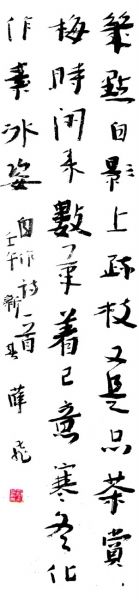 幾點白影上疏枝又是品茶賞
梅時閑来數筆着己意寒冬化
作冰姿
自作詩一首
壬午新春
薛飛